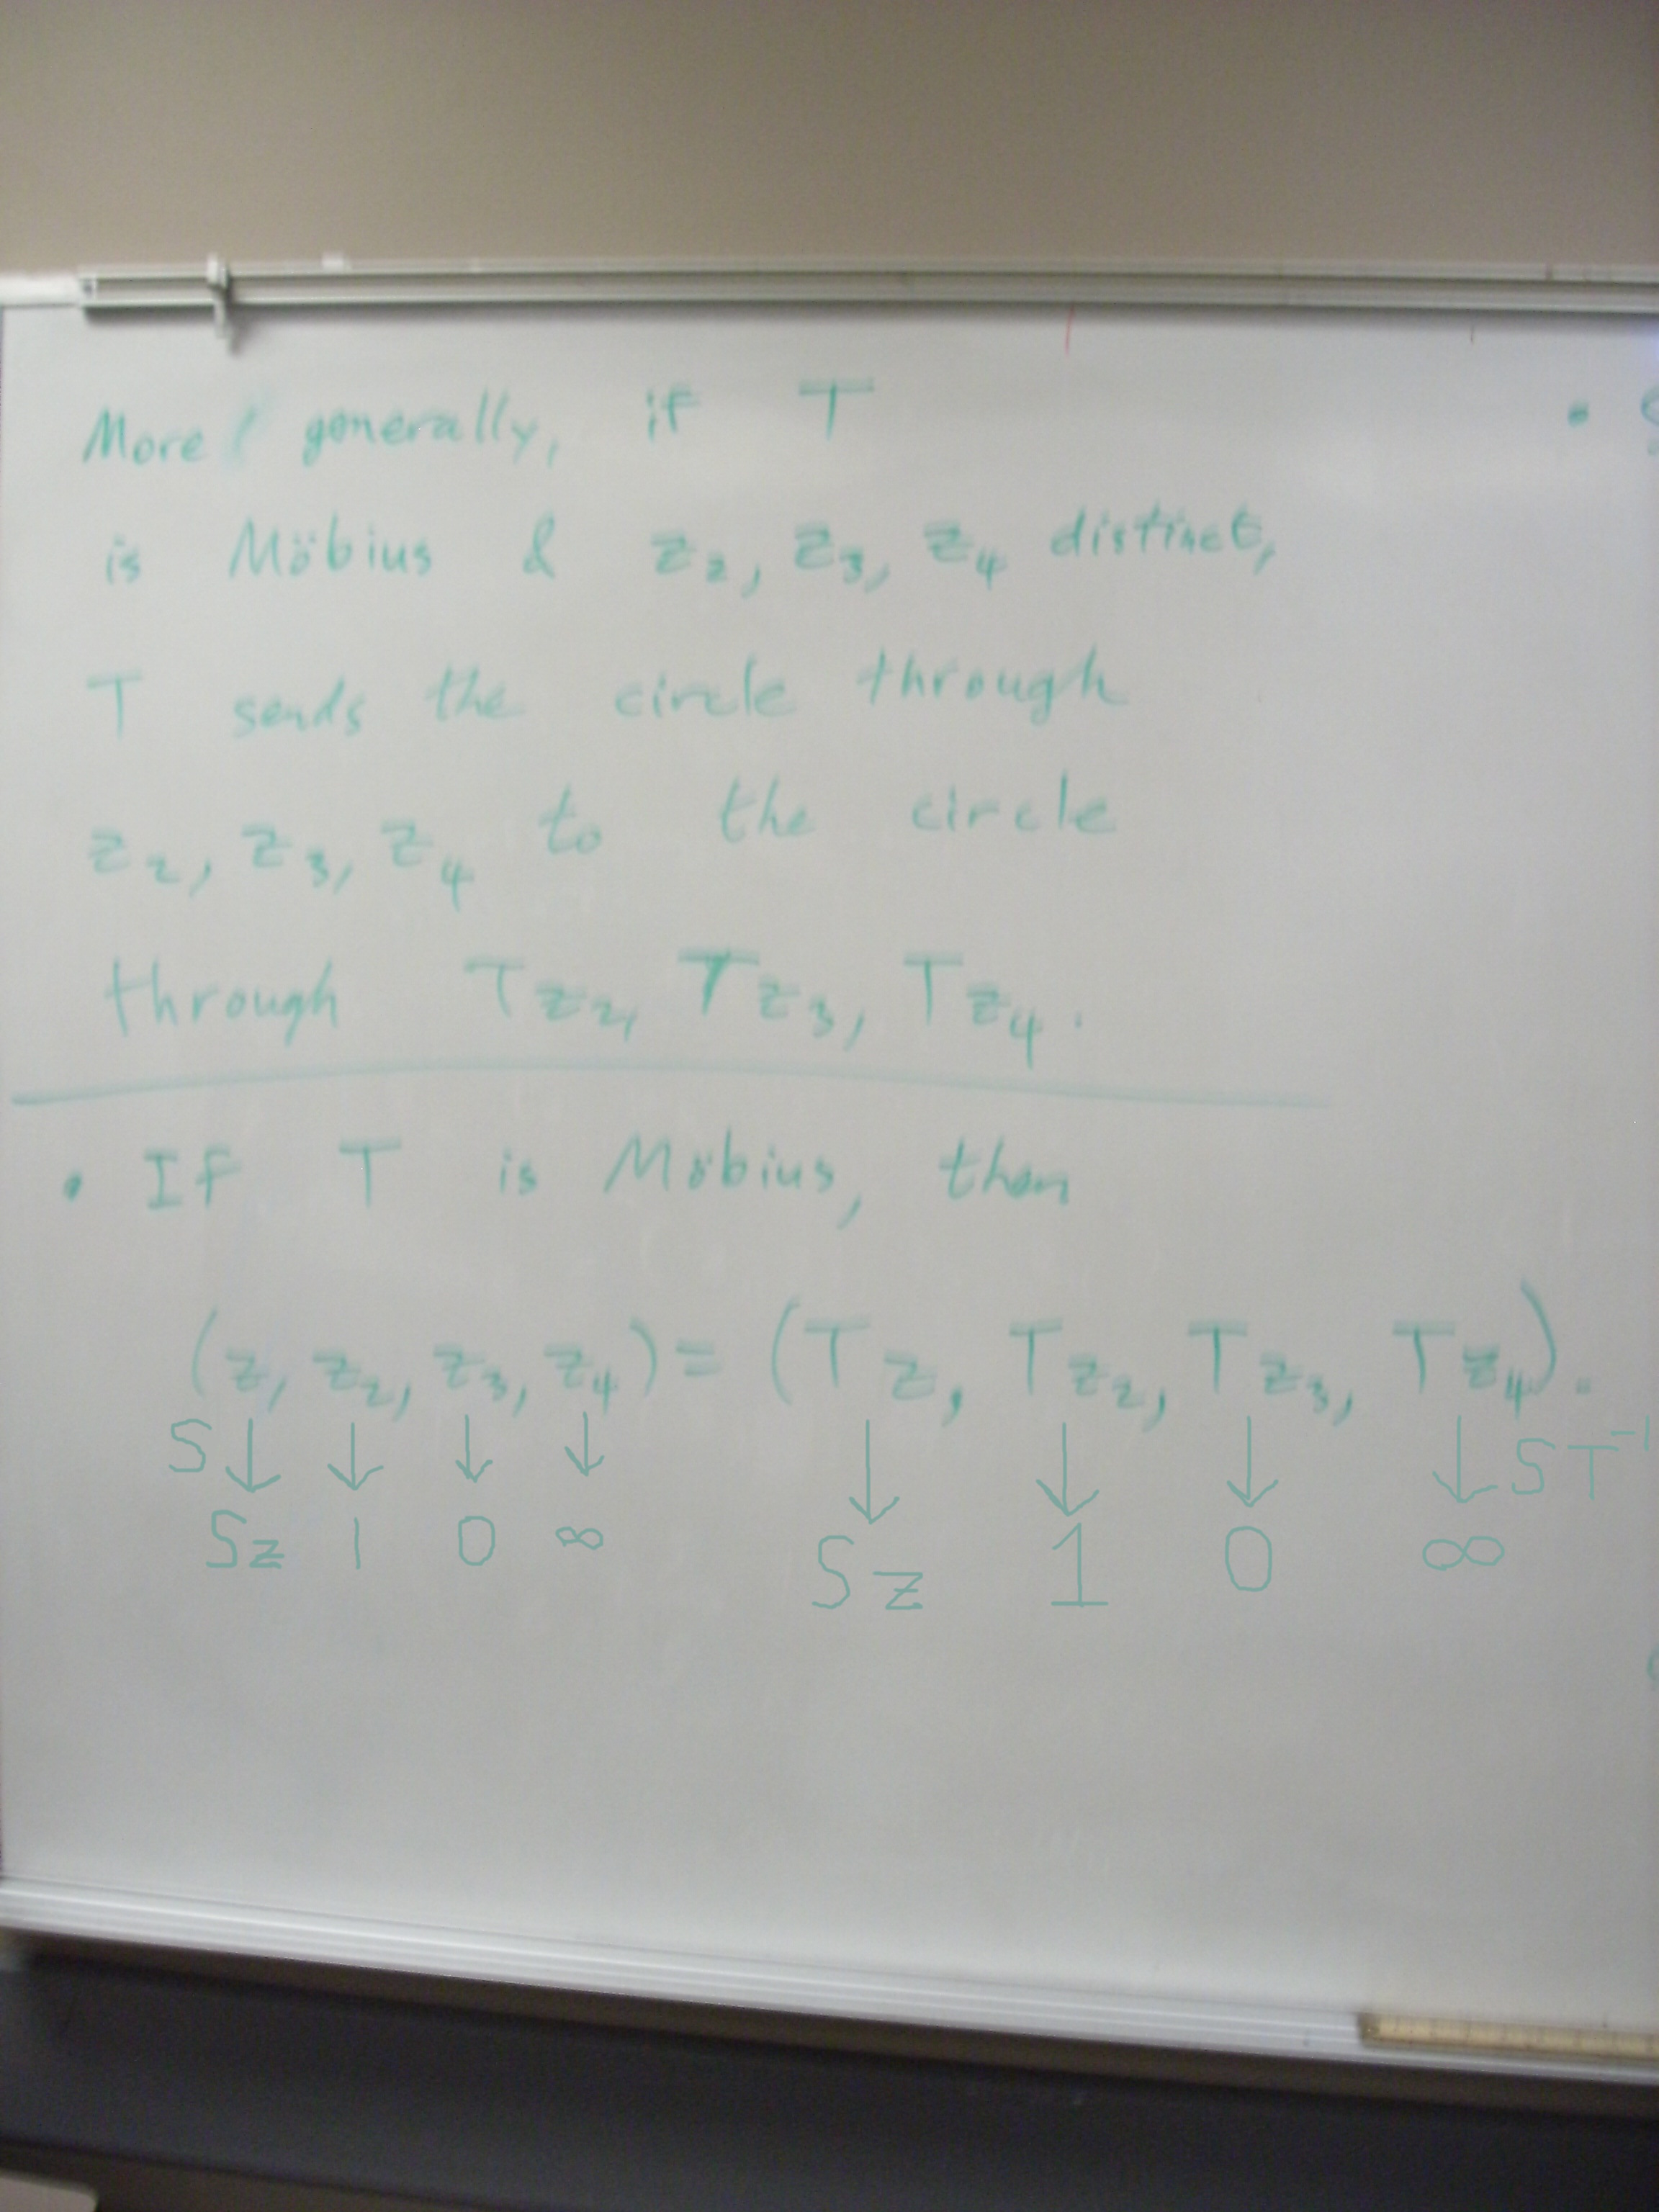 More generally, if T
is Möbius & z₂, z₃, z₄ distinct,
T sends the circle through
z₂, z₃, z₄ to the circle
through Tz₂, Tz₃, Tz₄.
• If T is Möbius, then
(z, z₂, z₃, z₄) = (Tz, Tz₂, Tz₃, Tz₄).
S ↓ ↓ ↓ ↓ ↓ ↓ ↓ ↓ ST⁻¹
Sz 1 0 ∞ Sz 1 0 ∞